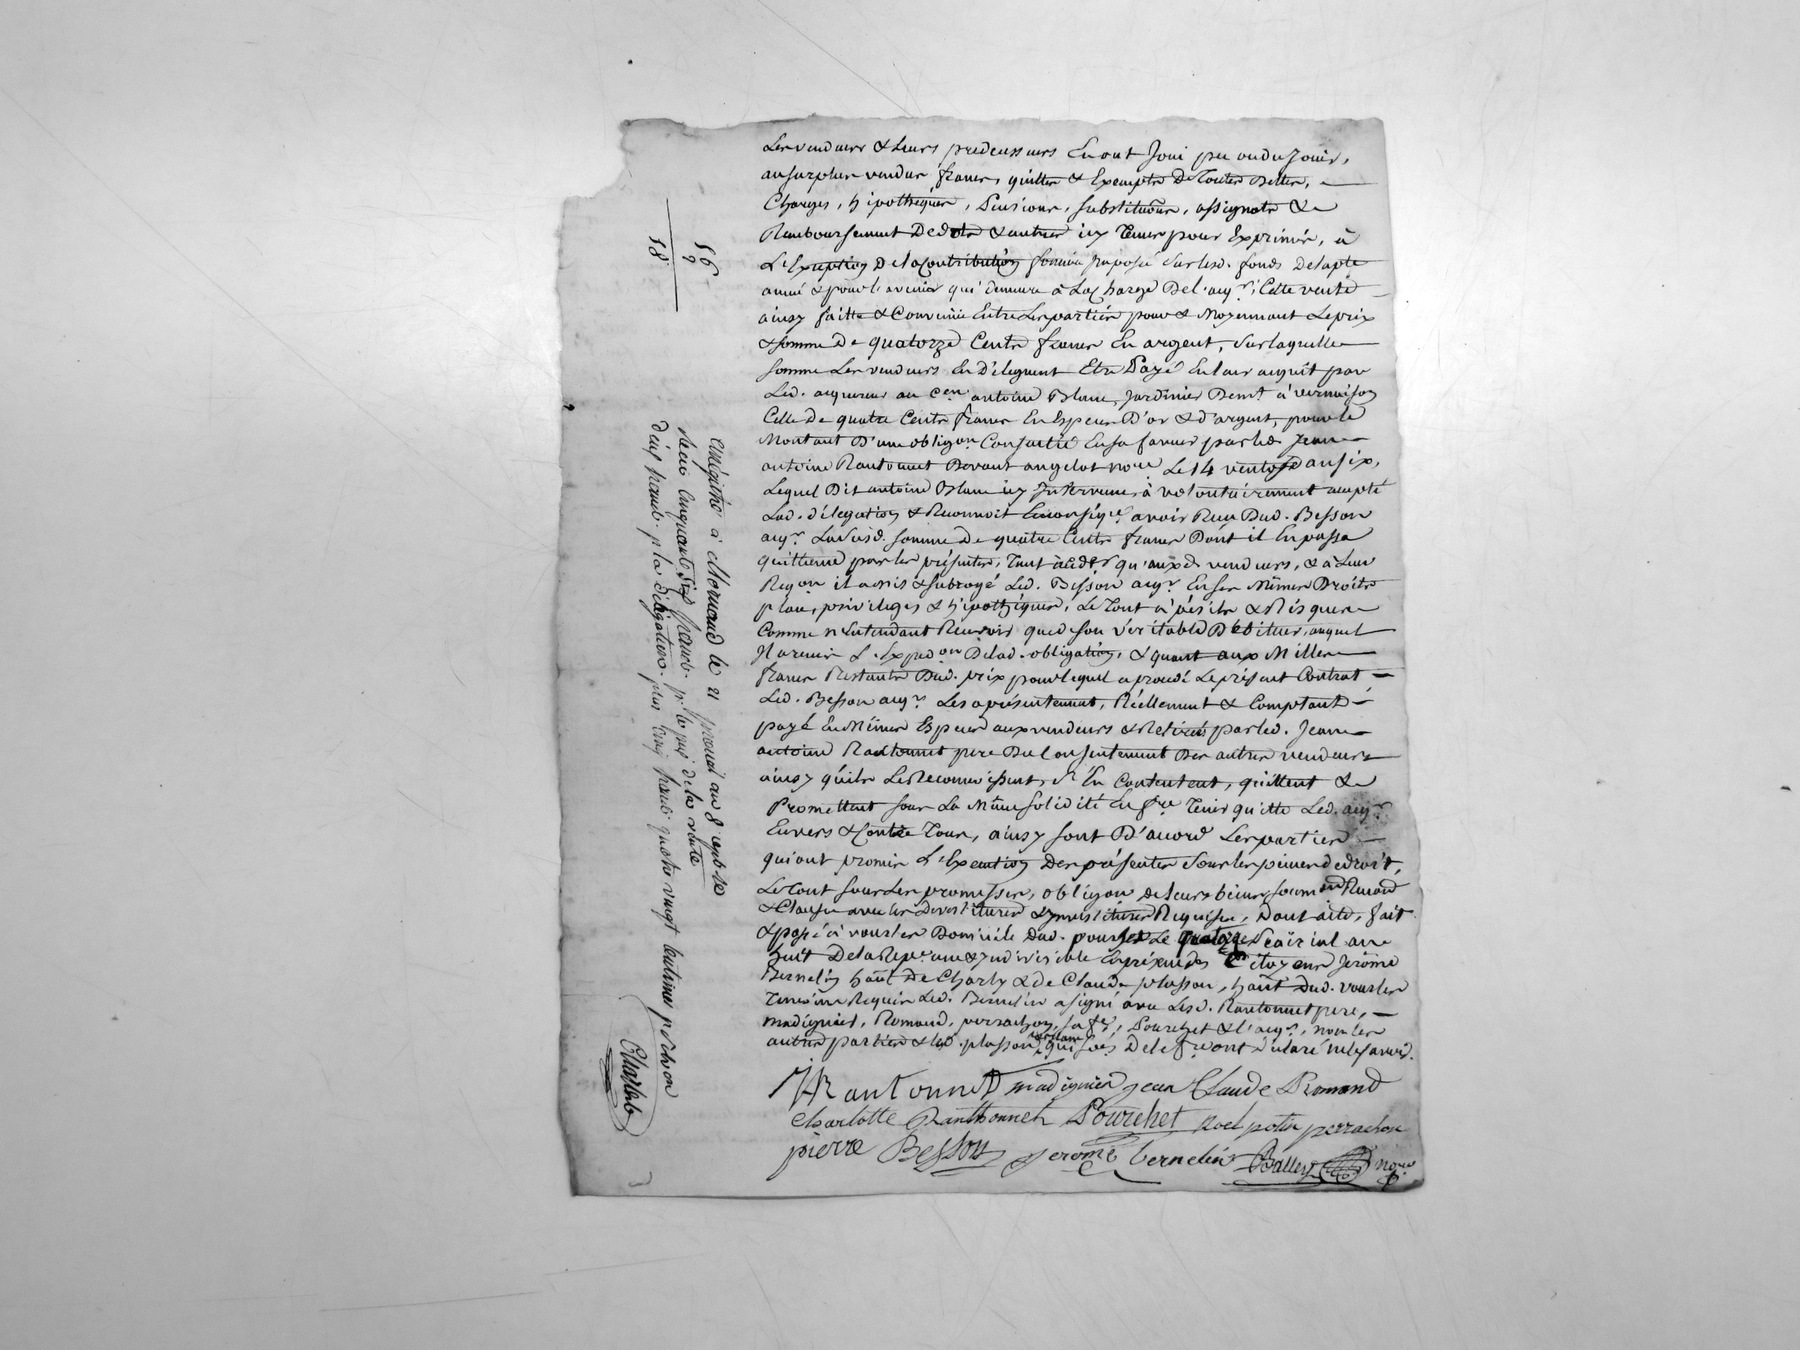 Les vendeurs & leurs predecesseurs En ont Joui peu ou du Jouir,
au surplus vendus francs, quittes & Exempts De Toutes Dettes,
Charges, hipothéques, Pensions, substitutions, assignats &
Remboursement De dots & autres icy Tenus pour Exprimés, à
L'Exception De la Contribution fonciere Imposée sur lesd. fonds De la pte
année & pour l'avenir qui demeure à La Charge De l'aqr. Cette vente
ainsy faitte & Convenüe Entre Les parties pour & Moyennant Le prix
& somme De quatorze Cents francs En argent, sur laquelle
somme Les vendeurs En Déleguent Etre Payé En leur acquit par
Led. aquereur au Cen. antoine Blanc, Jardinier Demt. à vernaison
Celle De quatre Cents francs En Especes D'or & d'argent, pour le
Montant D'une obligon Consentie En sa faveur par led. Jean
antoine Rantonnet Devant angelot nore. Le 14 ventose an six,
Lequel Dit antoine Blanc icy Intervenu, à volontairement accepté
Lad. délegation & Reconnoit avoir Reçu Dud. Besson
aqr. La susd. somme De quatre Cents francs Dont il En passe
quittance par les présentes, Tant qu'auxd. vendeurs, & à Leur
Reqon il a mis & subrogé Led. Besson aqr. En ses Mêmes Droits
place, privileges & hipothéques, Le Tout à périls & Risques
Comme n'Entendant Recevoir que de son véritable Débiteur, auquel
Il a remis L'Expedon De lad. obligation, & quant aux Mille
francs Restants Dud. prix pour lequel a procedé Le présent Contrat
Led. Besson aqr. Les a présentement, Réellement & Comptant
payé En Mêmes Especes aux vendeurs & Retirés par led. Jean
antoine Rantonnet pere Du Consentement Des autres vendeurs
ainsy qu'ils Le Reconnoissent, s'En Contentent, quittent &
Promettent sous La Même solidité En fre Tenir quitte Led. aqr.
Envers & Contre Tous, ainsy sont D'accord Les parties
qui ont promis L'Exécution Des présentes sous les peines de droit,
Le Tout sous Les promesses, obligon de leurs biens,
& Clauses avec les Devestitures & Investitures Requises, Dont acte, fait
& passé à vourles Domicile Dud. pourchet Le quatorze Prairial an
huit De la Repe. une & Indivisible En présence des Citoyens Jerome
Bernelin hant De Charly & de Claude plasson, hant Dud. vourles
Temoins Requis Led. Bernelin a signé avec Lesd. Rantonnet pere,
madignier, Romand, perrachon, sa fe., Pourchet & l'aqr., non les
autres parties & led. plasson qui ont déclaré ne le savoir.
JA Rantonnet madignier jean Claude Romand
charlotte Ranthonnet Pourchet perrachon
pierre Besson Jerome bernelin Ballet nore
56
9
18
enregistré à Mornand le 21 prairial an 8
reçu cinquante six francs pr. le prix de la vente
deux francs pr. la délégation. plus cinq francs quatre vingt centimes